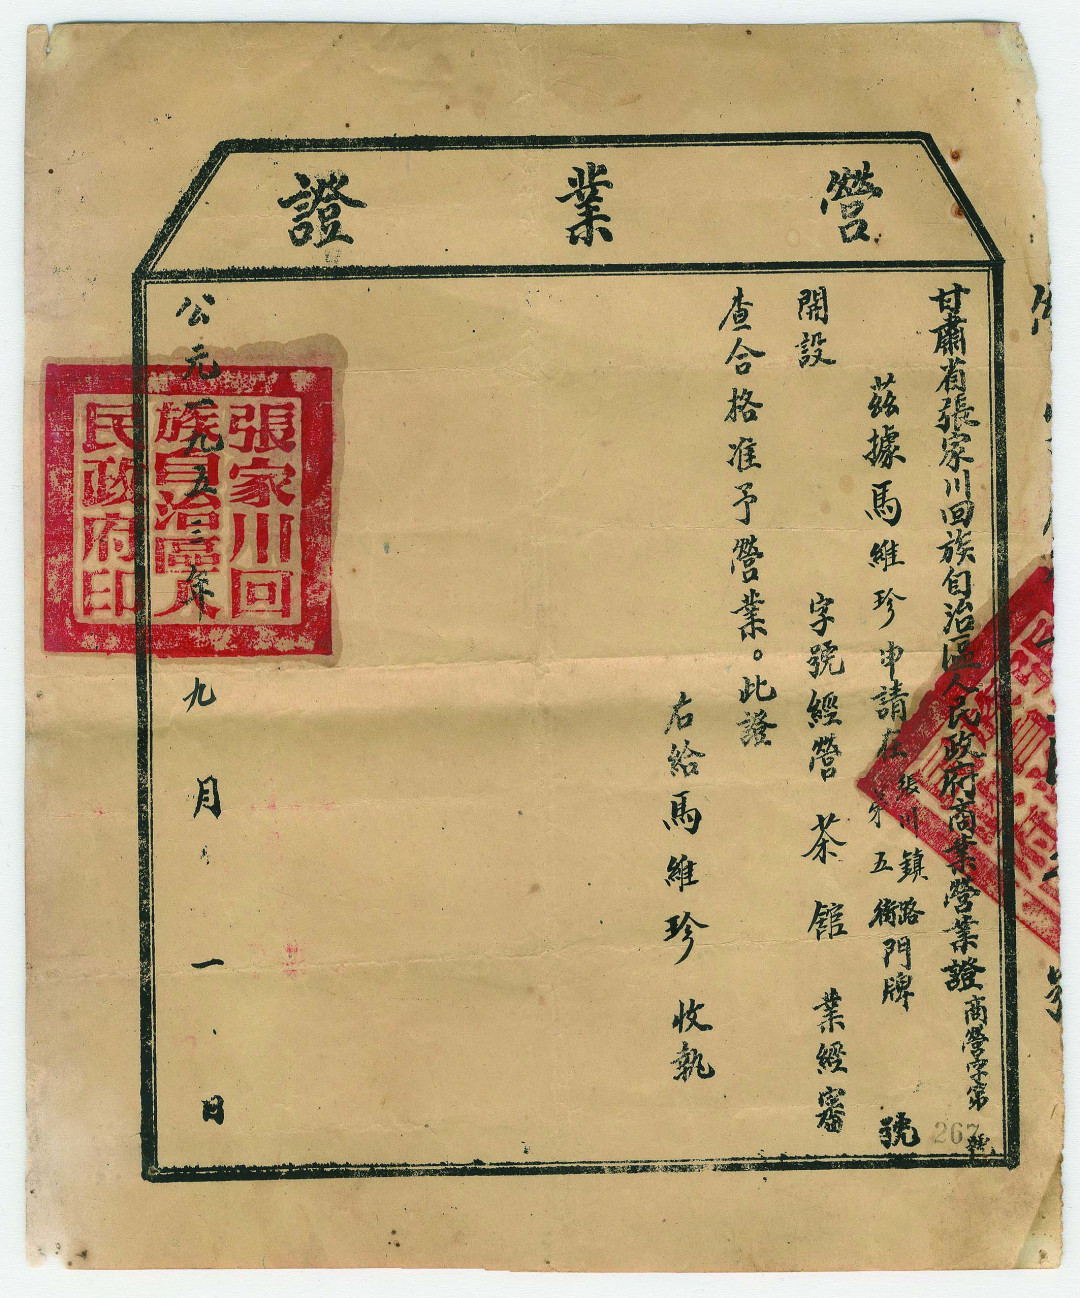 營業證
甘肅省張家川回族自治區人民政府商業營業證 商營字第267號
茲據馬維珍申請在張川鎮路第五街門牌號
開設 字號經營茶館業經審
查合格准予營業。此證
右給馬維珍收執
公元一九五三年九月一日
張家川回
族自治區人
民政府印